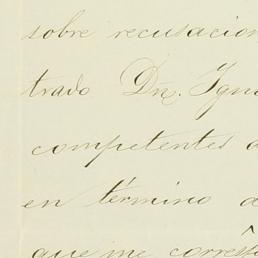 sobre recusacion
trado Dn. Igna
competentes
en término d
que me corresp